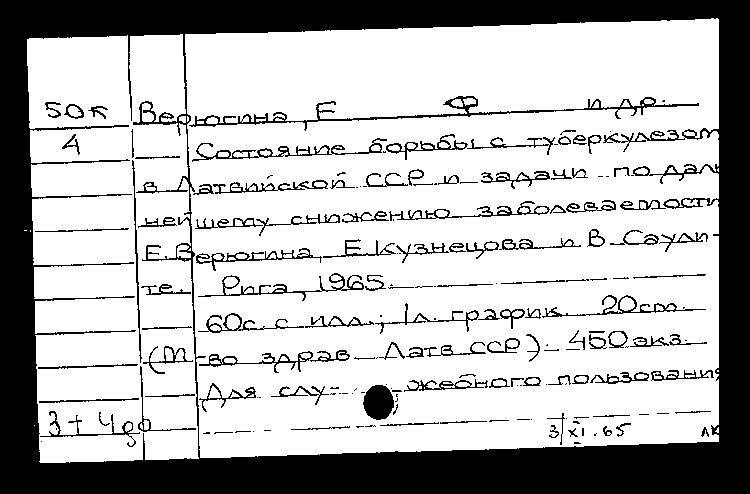 50к Верюгина, Е Ф и др.
4 Состояние борьбы с туберкулезом
в Латвийской ССР и задачи по даль
нейшему снижению заболеваемости
Е. Верюгина, Е. Кузнецова и В. Саули-
те. Рига, 1965.
60с. с илл.; 1л. график. 20cm.
(М-во здрав. Латв ССР). 450 экз.
Для слу- жебного пользования
3+4до
3/XI.65 АК